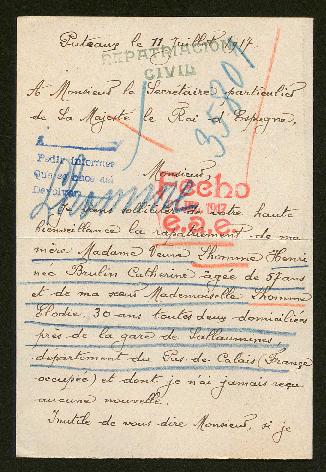 Puteaux le 11 Juillet 1917.
REPATRIACION
CIVIL
35801
A Monsieur le Secrétaire particulier
de Sa Majesté le Roi d'Espagne,
A
Pedir informes
Que se
Devolver
Monsieur,
Lhomme
Hecho
1917
Je viens solliciter de votre haute
bienveillance le rapatriement de ma
mère Madame Veuve Lhomme Henri
née Brulin Catherine agée de 57 ans
et de ma sœur Mademoiselle Lhomme
Elodie, 30 ans toutes deux domiciliées
près de la gare de Sallaumines,
département du Pas-de-Calais (France
occupée) et dont je n'ai jamais reçu
aucune nouvelle.
Inutile de vous dire Monsieur, si je